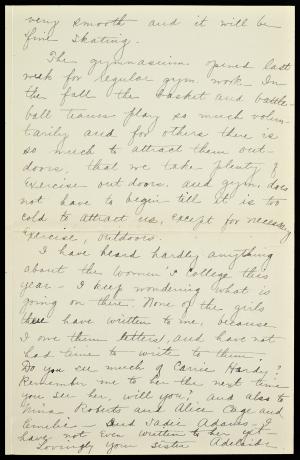 very smooth and it will be
fine skating.
The gymnasium opened last
week for regular gym. work. In
the fall the basket and battle-
ball teams play so much volun-
tarily and for others there is
so much to attract them out-
doors, that we take plenty of
exercise out doors, and gym. does
not have to begin till it is too
cold to attract us, except for necessary
exercise, outdoors.
I have heard hardly anything
about the Women's College this
year - I keep wondering what is
going on there. None of the girls
there have written to me, because
I owe them letters, and have not
had time to write to them.
Do you see much of Carrie Hardy?
Remember me to her the next time
you see her, will you? and also to
Nina Roberts and Alice Gage and
Emelie - and Sadie Adams, I
have not even written to her yet.
Lovingly your sister Adelaide